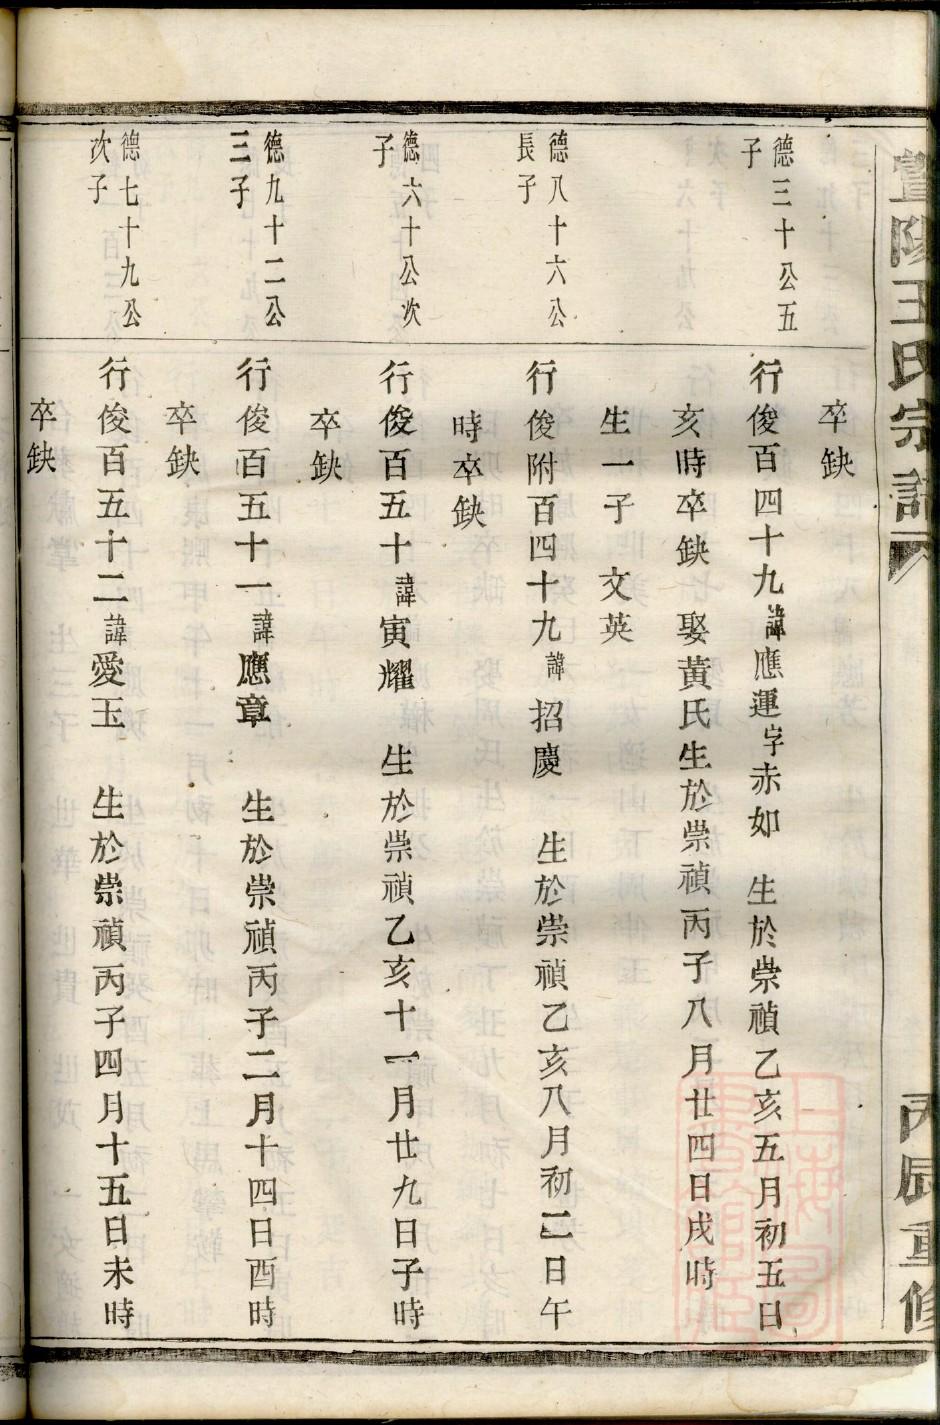 暨陽王氏宗譜
丙辰重修
卒缺
德三十公五
子
行俊百四十九諱應運字赤如 生於崇禎乙亥五月初五日
亥時卒缺 娶黃氏生於崇禎丙子八月廿四日戌時
生一子 文英
德八十六公
長子
行俊附百四十九諱招慶 生於崇禎乙亥八月初二日午
時卒缺
德六十公次
子
行俊百五十諱寅耀 生於崇禎乙亥十一月廿九日子時
卒缺
德九十二公
三子
行俊百五十一諱應章 生於崇禎丙子二月十四日酉時
卒缺
德七十九公
次子
行俊百五十二諱愛玉 生於崇禎丙子四月十五日未時
卒缺